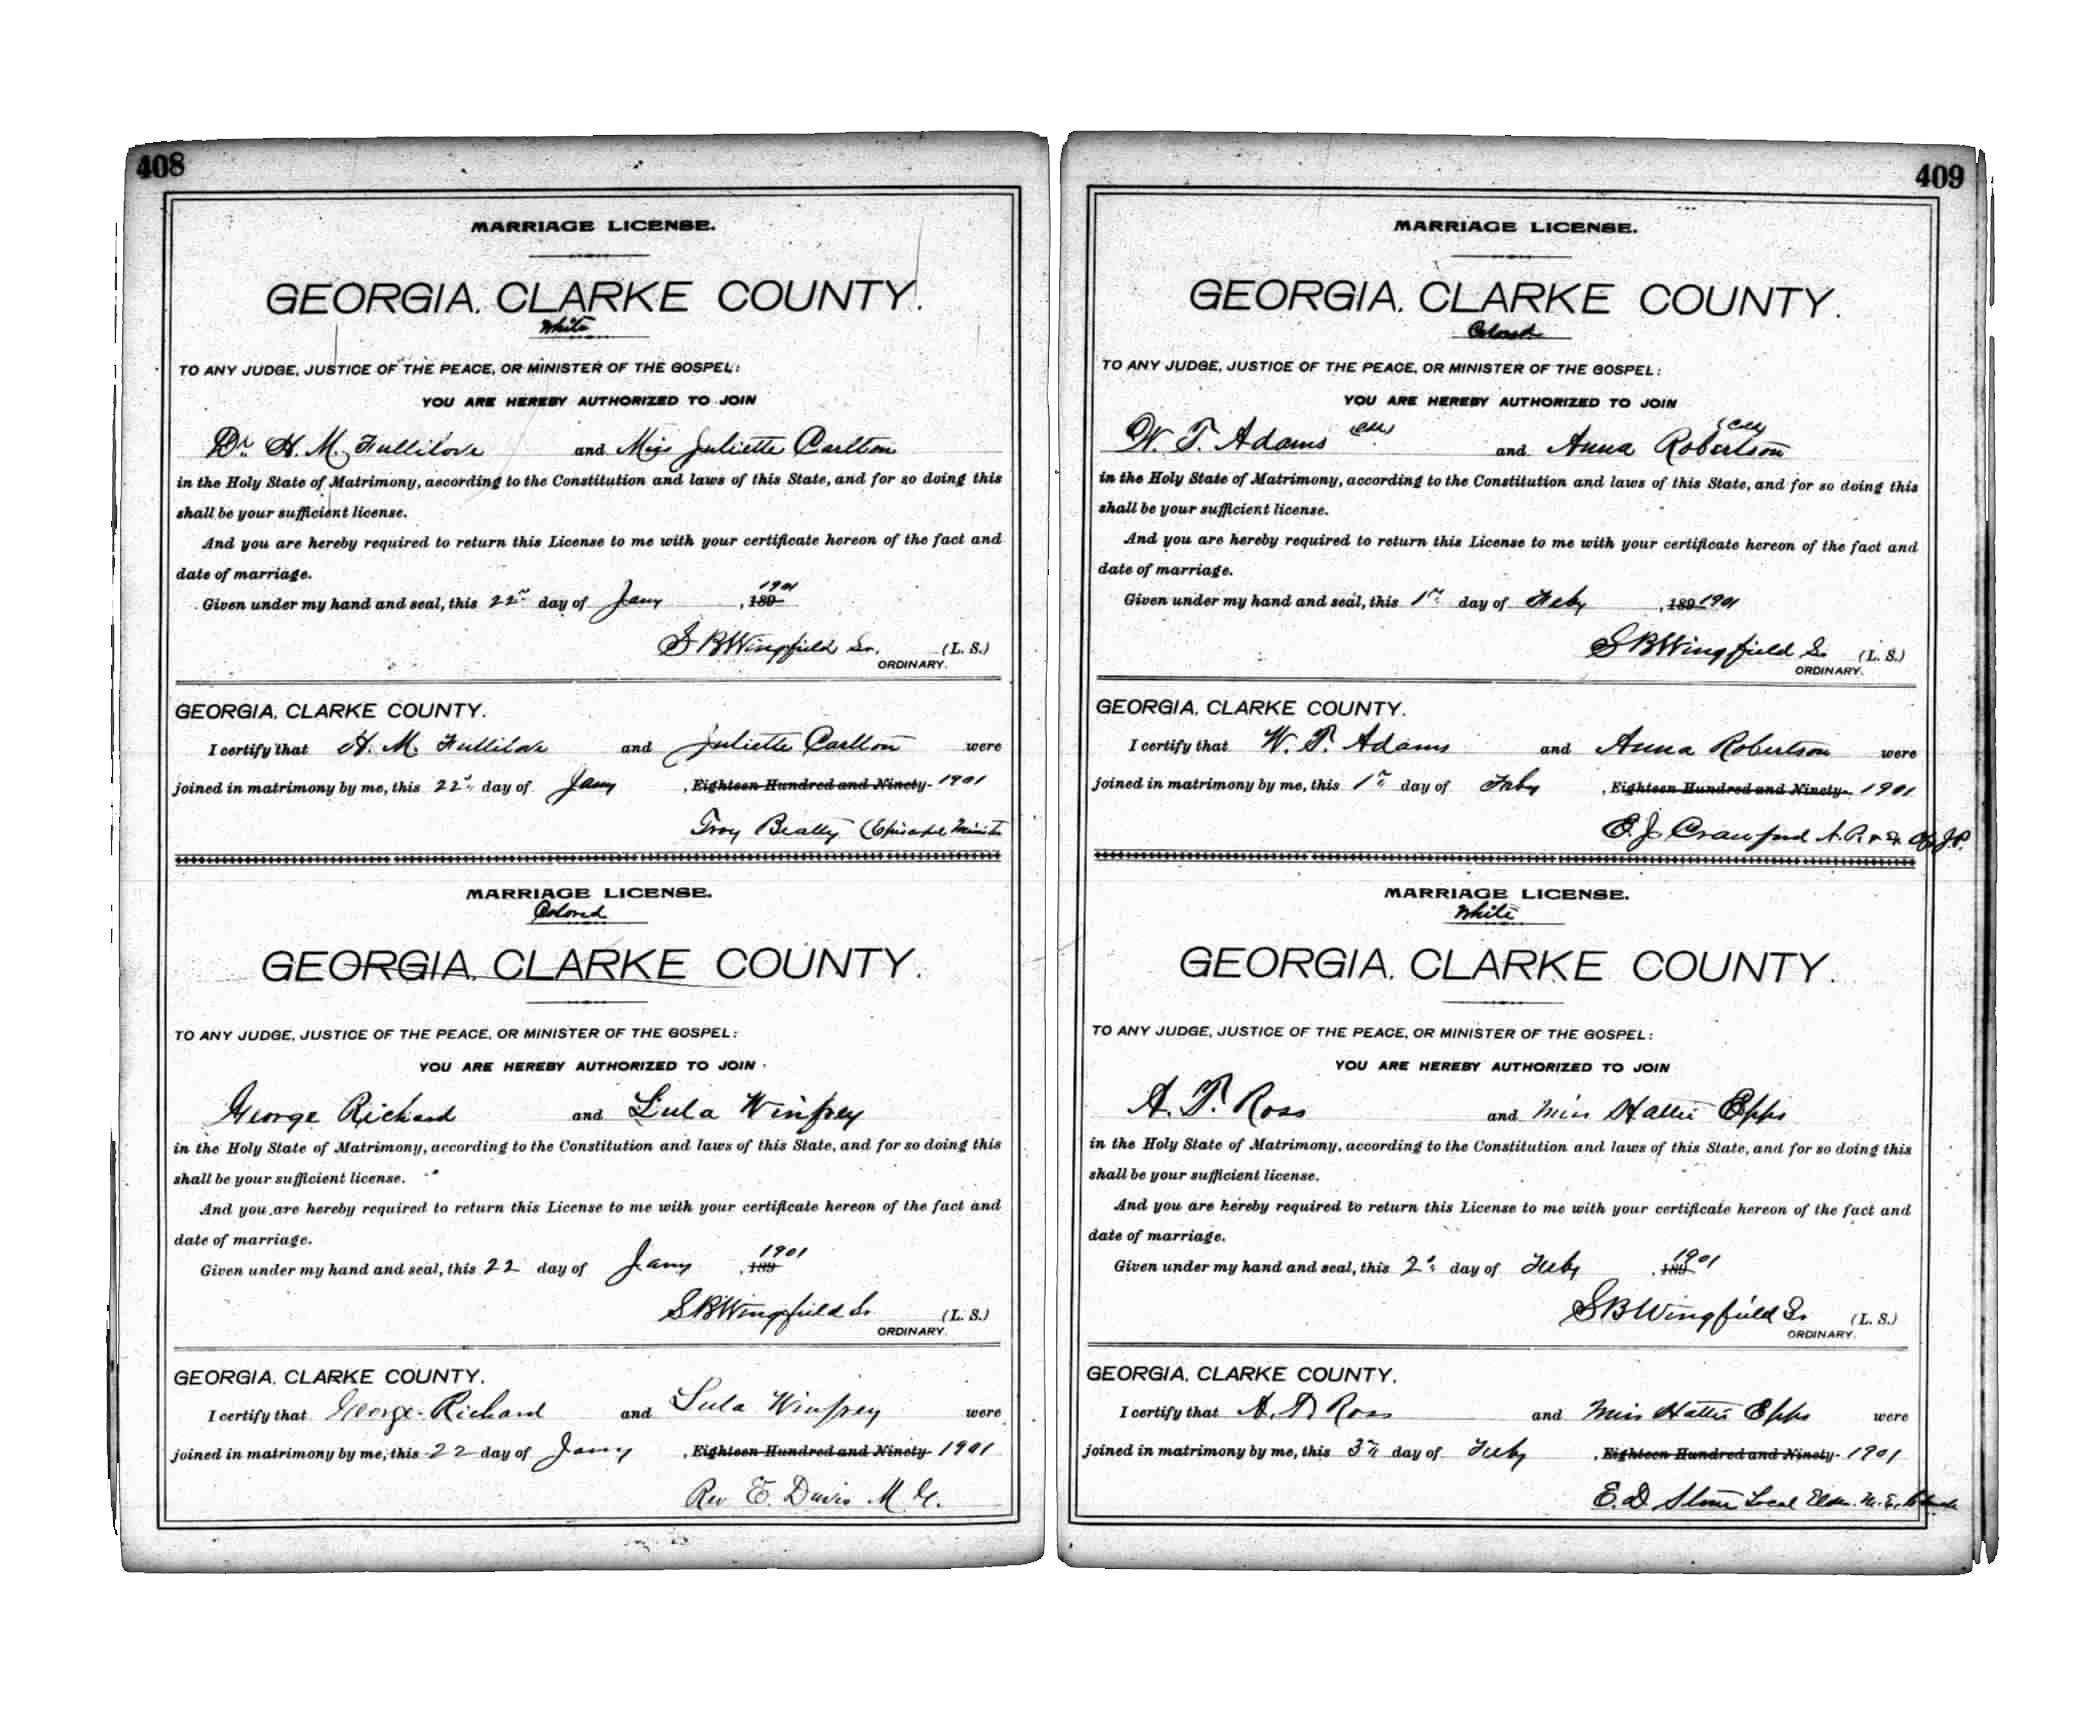 408
MARRIAGE LICENSE.
GEORGIA, CLARKE COUNTY.
White
TO ANY JUDGE, JUSTICE OF THE PEACE, OR MINISTER OF THE GOSPEL:
YOU ARE HEREBY AUTHORIZED TO JOIN
Dr. H. M. Fullilove and Miss Juliette Carlton
in the Holy State of Matrimony, according to the Constitution and laws of this State, and for so doing this
shall be your sufficient license.
And you are hereby required to return this License to me with your certificate hereon of the fact and
date of marriage.
Given under my hand and seal, this 22nd day of Jany, 189 1901
S B Wingfield Sr. (L. S.)
ORDINARY.
GEORGIA, CLARKE COUNTY.
I certify that H. M. Fullilove and Juliette Carlton were
joined in matrimony by me, this 22d day of Jany, Eighteen Hundred and Ninety- 1901
Troy Beatty (Episcopal Minister
MARRIAGE LICENSE.
Colored
GEORGIA, CLARKE COUNTY.
TO ANY JUDGE, JUSTICE OF THE PEACE, OR MINISTER OF THE GOSPEL:
YOU ARE HEREBY AUTHORIZED TO JOIN
George Richard and Lula Winfrey
in the Holy State of Matrimony, according to the Constitution and laws of this State, and for so doing this
shall be your sufficient license.
And you are hereby required to return this License to me with your certificate hereon of the fact and
date of marriage.
Given under my hand and seal, this 22 day of Jany, 189 1901
S B Wingfield Sr. (L. S.)
ORDINARY.
GEORGIA, CLARKE COUNTY.
I certify that George Richard and Lula Winfrey were
joined in matrimony by me, this 22 day of Jany, Eighteen Hundred and Ninety- 1901
Rev E. Davis M. G.
409
MARRIAGE LICENSE.
GEORGIA, CLARKE COUNTY.
Colored
TO ANY JUDGE, JUSTICE OF THE PEACE, OR MINISTER OF THE GOSPEL:
YOU ARE HEREBY AUTHORIZED TO JOIN
W. T. Adams (col) and Anna Robertson (col)
in the Holy State of Matrimony, according to the Constitution and laws of this State, and for so doing this
shall be your sufficient license.
And you are hereby required to return this License to me with your certificate hereon of the fact and
date of marriage.
Given under my hand and seal, this 1st day of Feby, 189 1901
S B Wingfield Sr. (L. S.)
ORDINARY.
GEORGIA, CLARKE COUNTY.
I certify that W. T. Adams and Anna Robertson were
joined in matrimony by me, this 1st day of Feby, Eighteen Hundred and Ninety- 1901
E. J. Crawford N. P. & Ex Off J. P.
MARRIAGE LICENSE.
White
GEORGIA, CLARKE COUNTY.
TO ANY JUDGE, JUSTICE OF THE PEACE, OR MINISTER OF THE GOSPEL:
YOU ARE HEREBY AUTHORIZED TO JOIN
A. T. Ross and Miss Hattie Epps
in the Holy State of Matrimony, according to the Constitution and laws of this State, and for so doing this
shall be your sufficient license.
And you are hereby required to return this License to me with your certificate hereon of the fact and
date of marriage.
Given under my hand and seal, this 2d day of Feby, 189 1901
S B Wingfield Sr. (L. S.)
ORDINARY.
GEORGIA, CLARKE COUNTY.
I certify that A. T. Ross and Miss Hattie Epps were
joined in matrimony by me, this 3rd day of Feby, Eighteen Hundred and Ninety- 1901
E. D. Stone Local Elder M. E. Church